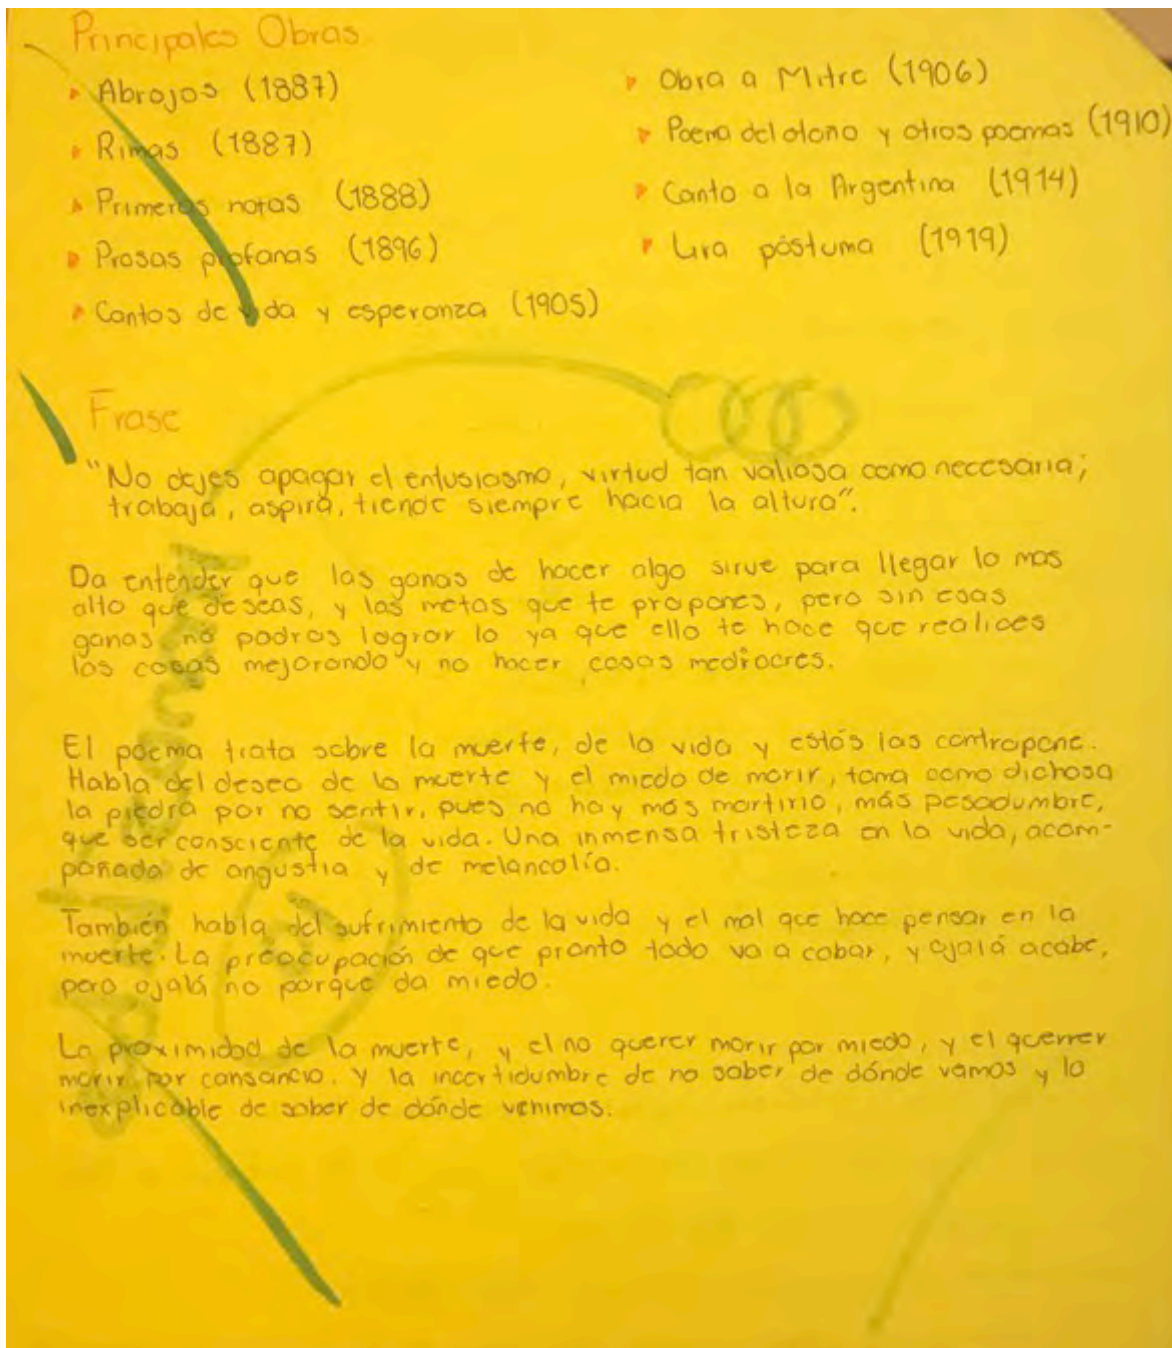 Principales Obras
Abrojos (1887)
Rimas (1887)
Primeros notas (1888)
Prosas profanas (1896)
Cantos de vida y esperanza (1905)
Obra a Mitre (1906)
Poema del otoño y otros poemas (1910)
Canto a la Argentina (1914)
Lira póstuma (1919)
Frase
"No dejes apagar el entusiasmo, virtud tan valiosa como necesaria;
trabaja, aspira, tiende siempre hacia la altura".
Da entender que las ganas de hacer algo sirve para llegar lo mas
alto que deseas, y las metas que te propones, pero sin esas
ganas no podras lograr lo ya que ello te hace que realices
las cosas mejorando y no hacer cosas mediocres.
El poema trata sobre la muerte, de la vida y estós las contrapone.
Habla del deseo de la muerte y el miedo de morir, toma como dichosa
la piedra por no sentir, pues no hay más martirio, más pesadumbre,
que ser consciente de la vida. Una inmensa tristeza en la vida, acom-
pañada de angustia y de melancolía.
También habla del sufrimiento de la vida y el mal que hace pensar en la
muerte. La preocupación de que pronto todo va a cabar, y ojalá acabe,
pero ojalá no porque da miedo.
La proximidad de la muerte, y el no querer morir por miedo, y el querrer
morir por cansancio. Y la incertidumbre de no saber de dónde vamos y lo
inexplicable de saber de dónde venimos.